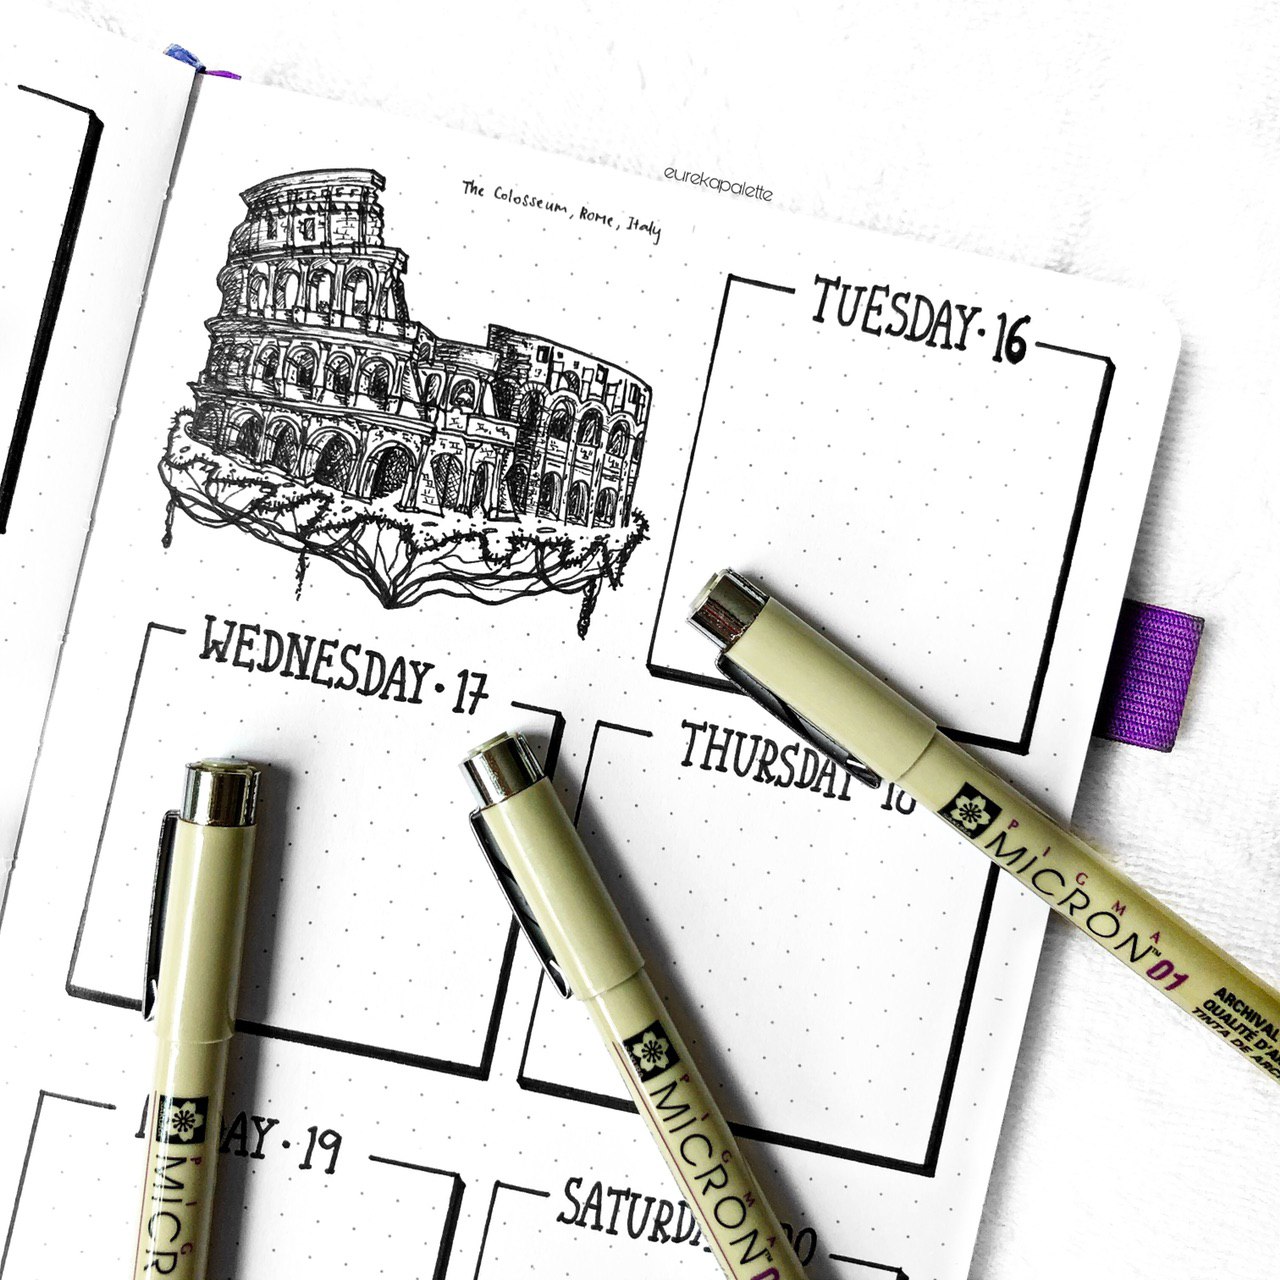 eurekapalette
The Colosseum, Rome, Italy
TUESDAY · 16
WEDNESDAY · 17
THURSDAY 18
DAY · 19
SATURDA
PIGMA
MICRON™ 01
ARCHIVAL
QUALITÉ D'A
TINTA DE ARC
PIGMA
MICRON™ 0
PIG
MICR